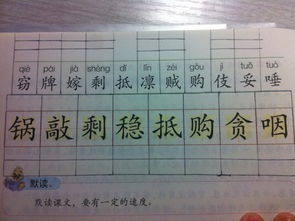 qiè pái jià shèng dǐ lǐn zéi gòu jì tuǒ tuò
窃 牌 嫁 剩 抵 凛 贼 购 伎 妥 唾
锅 敲 剩 稳 抵 购 贪 咽
默读。
默读课文，要有一定的速度。